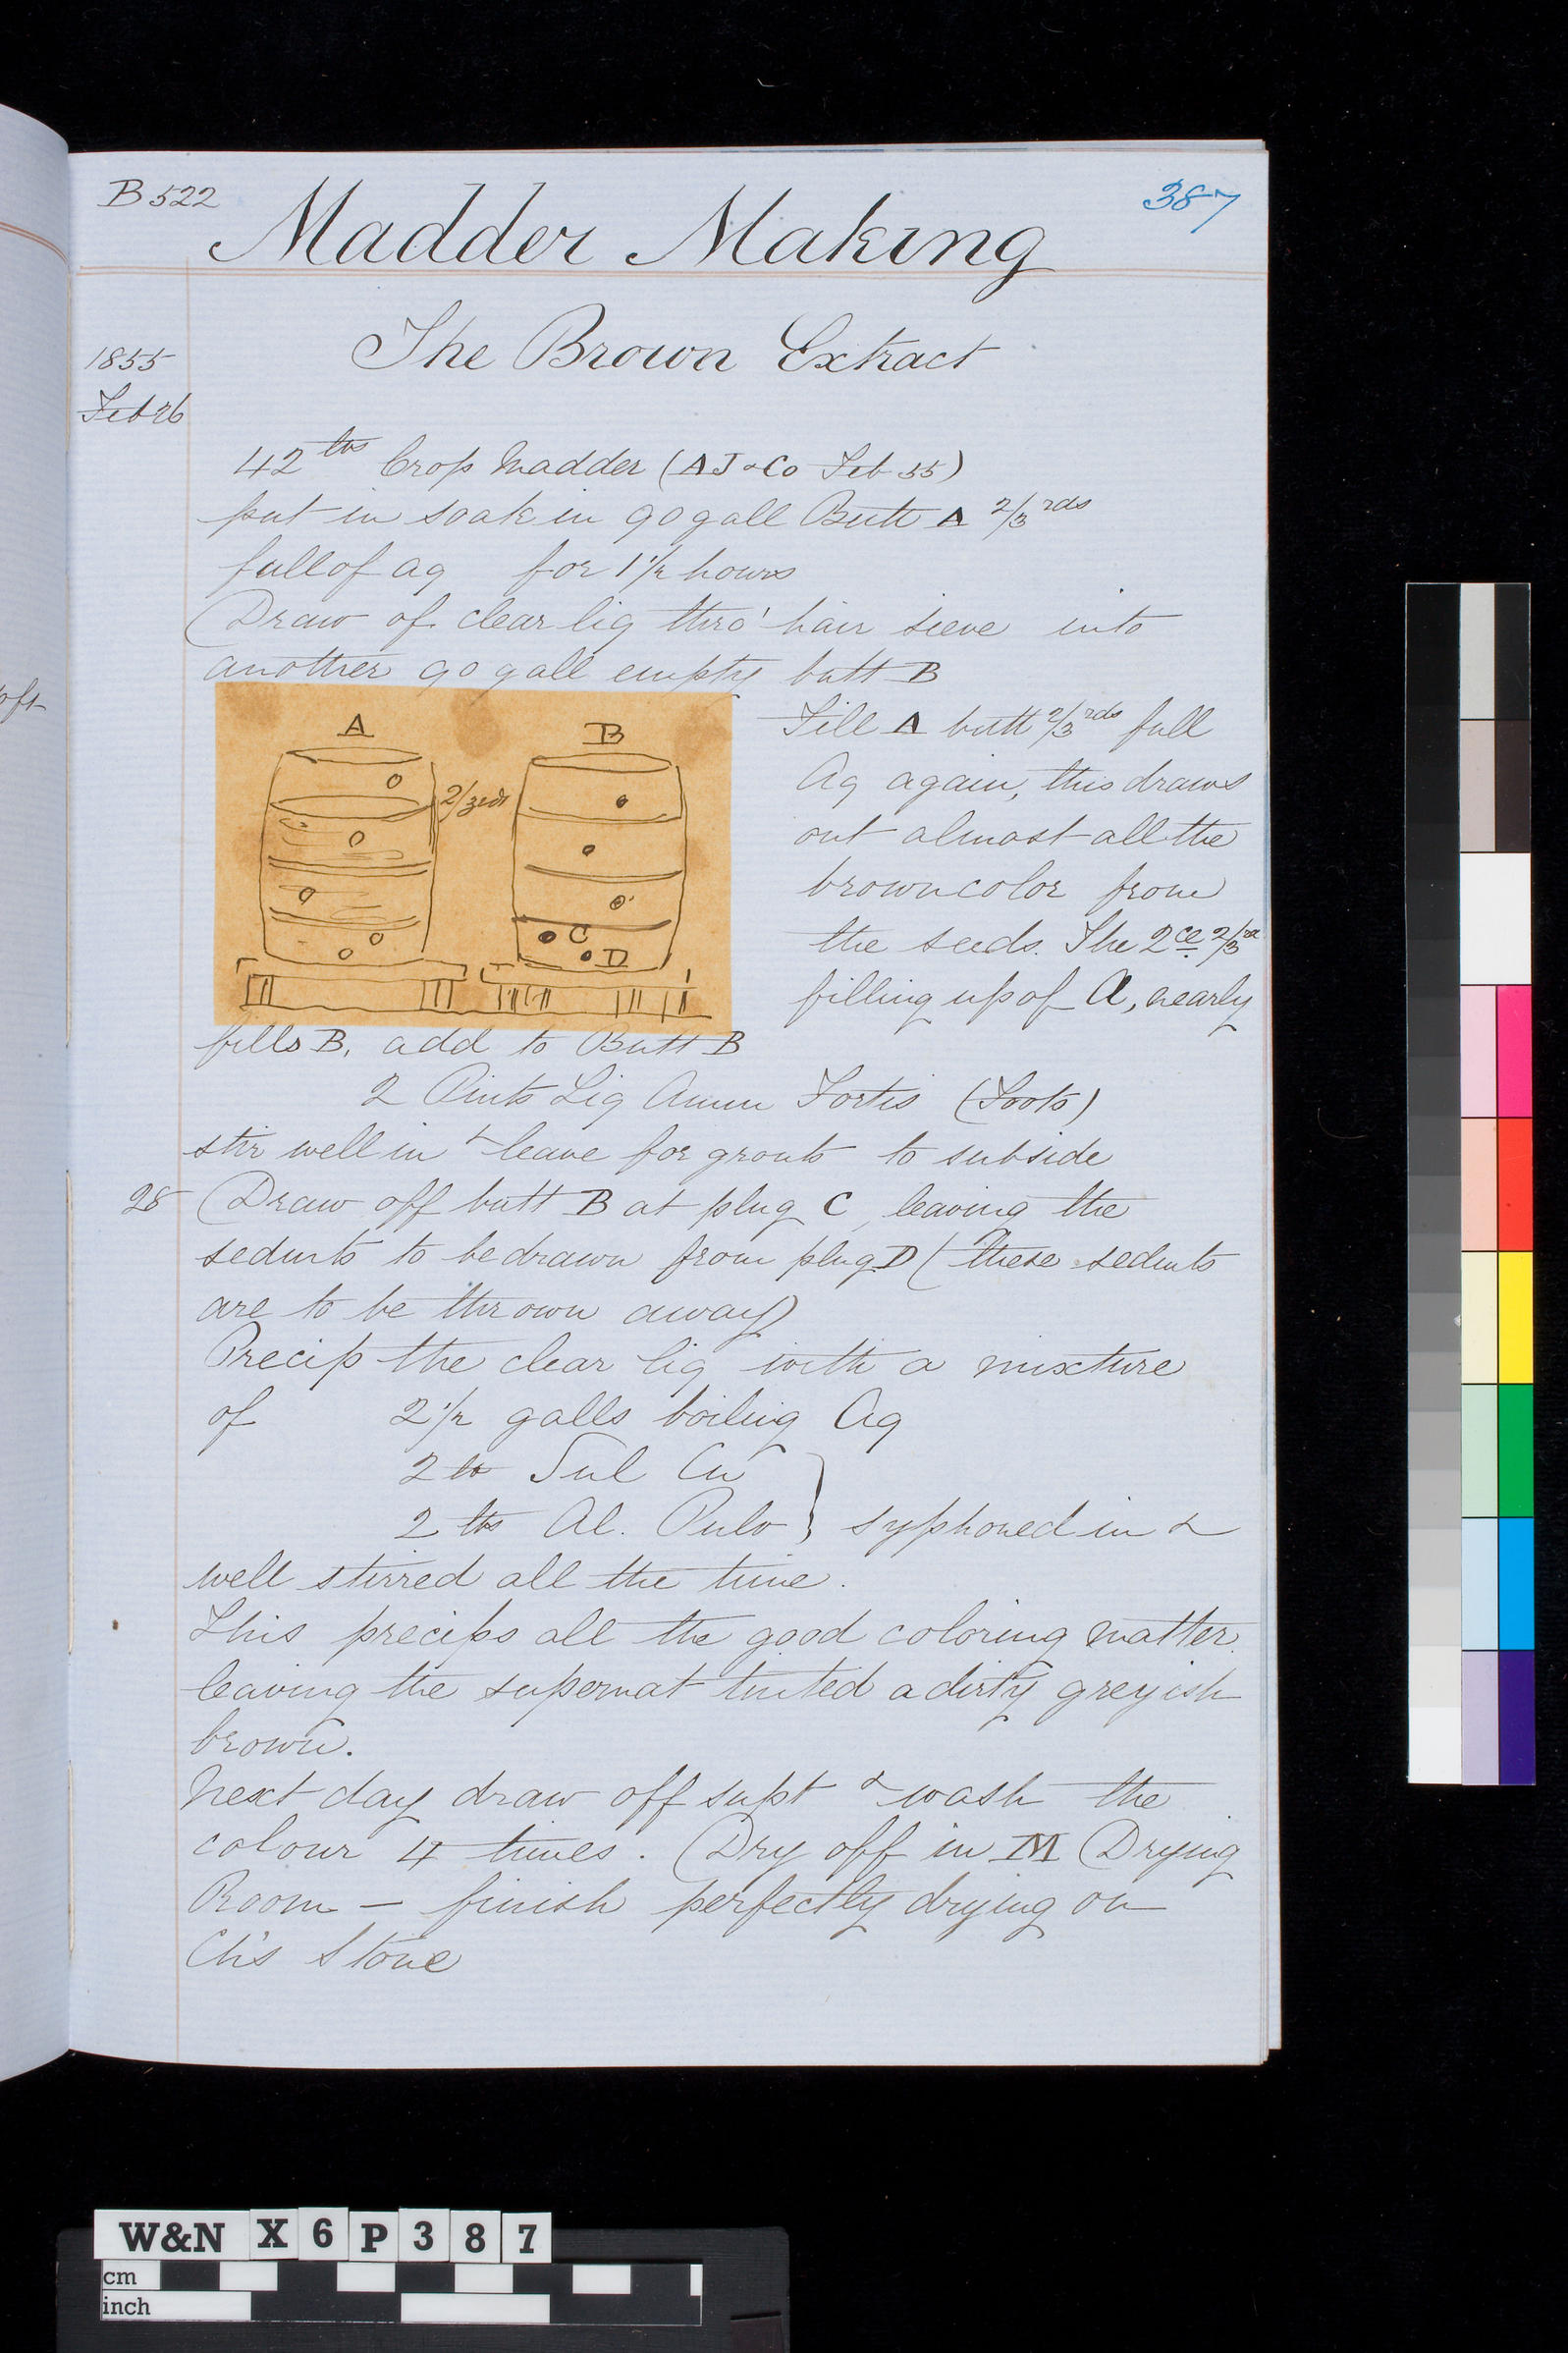 B 522
387
Madder Making
The Brown Extract
1855
Feb 26
42 lbs Crop Madder (AJ & Co Feb 55)
put in soak in 90 gall Butt A 2/3 rds
full of aq for 1 1/2 hours
Draw of clear liq thro' hair sieve into
another 90 gall empty butt B
A
B
2/3rds
C
D
Fill A butt 2/3 rds full
Aq again, this draws
out almost all the
brown color from
the seeds. The 2ce 2/3 rd
filling up of A, nearly
fills B, add to Butt B
2 Pints Liq Amm Fortis (Foots)
stir well in & leave for grouts to subside
28 Draw off butt B at plug C, leaving the
sedmts to be drawn from plug D (these sedmts
are to be thrown away)
Precip the clear liq with a mixture
of 2 1/2 galls boiling Aq
2 lb Sul Cu
2 lbs Al. Pulv } syphoned in &
well stirred all the time.
This precips all the good coloring matter.
leaving the supernat tinted a dirty greyish
brown.
Next day draw off supt & wash the
colour 4 times. Dry off in M Drying
Room – finish perfectly drying on
Ch's Stove
oft
W&N X 6 P 3 8 7
cm
inch